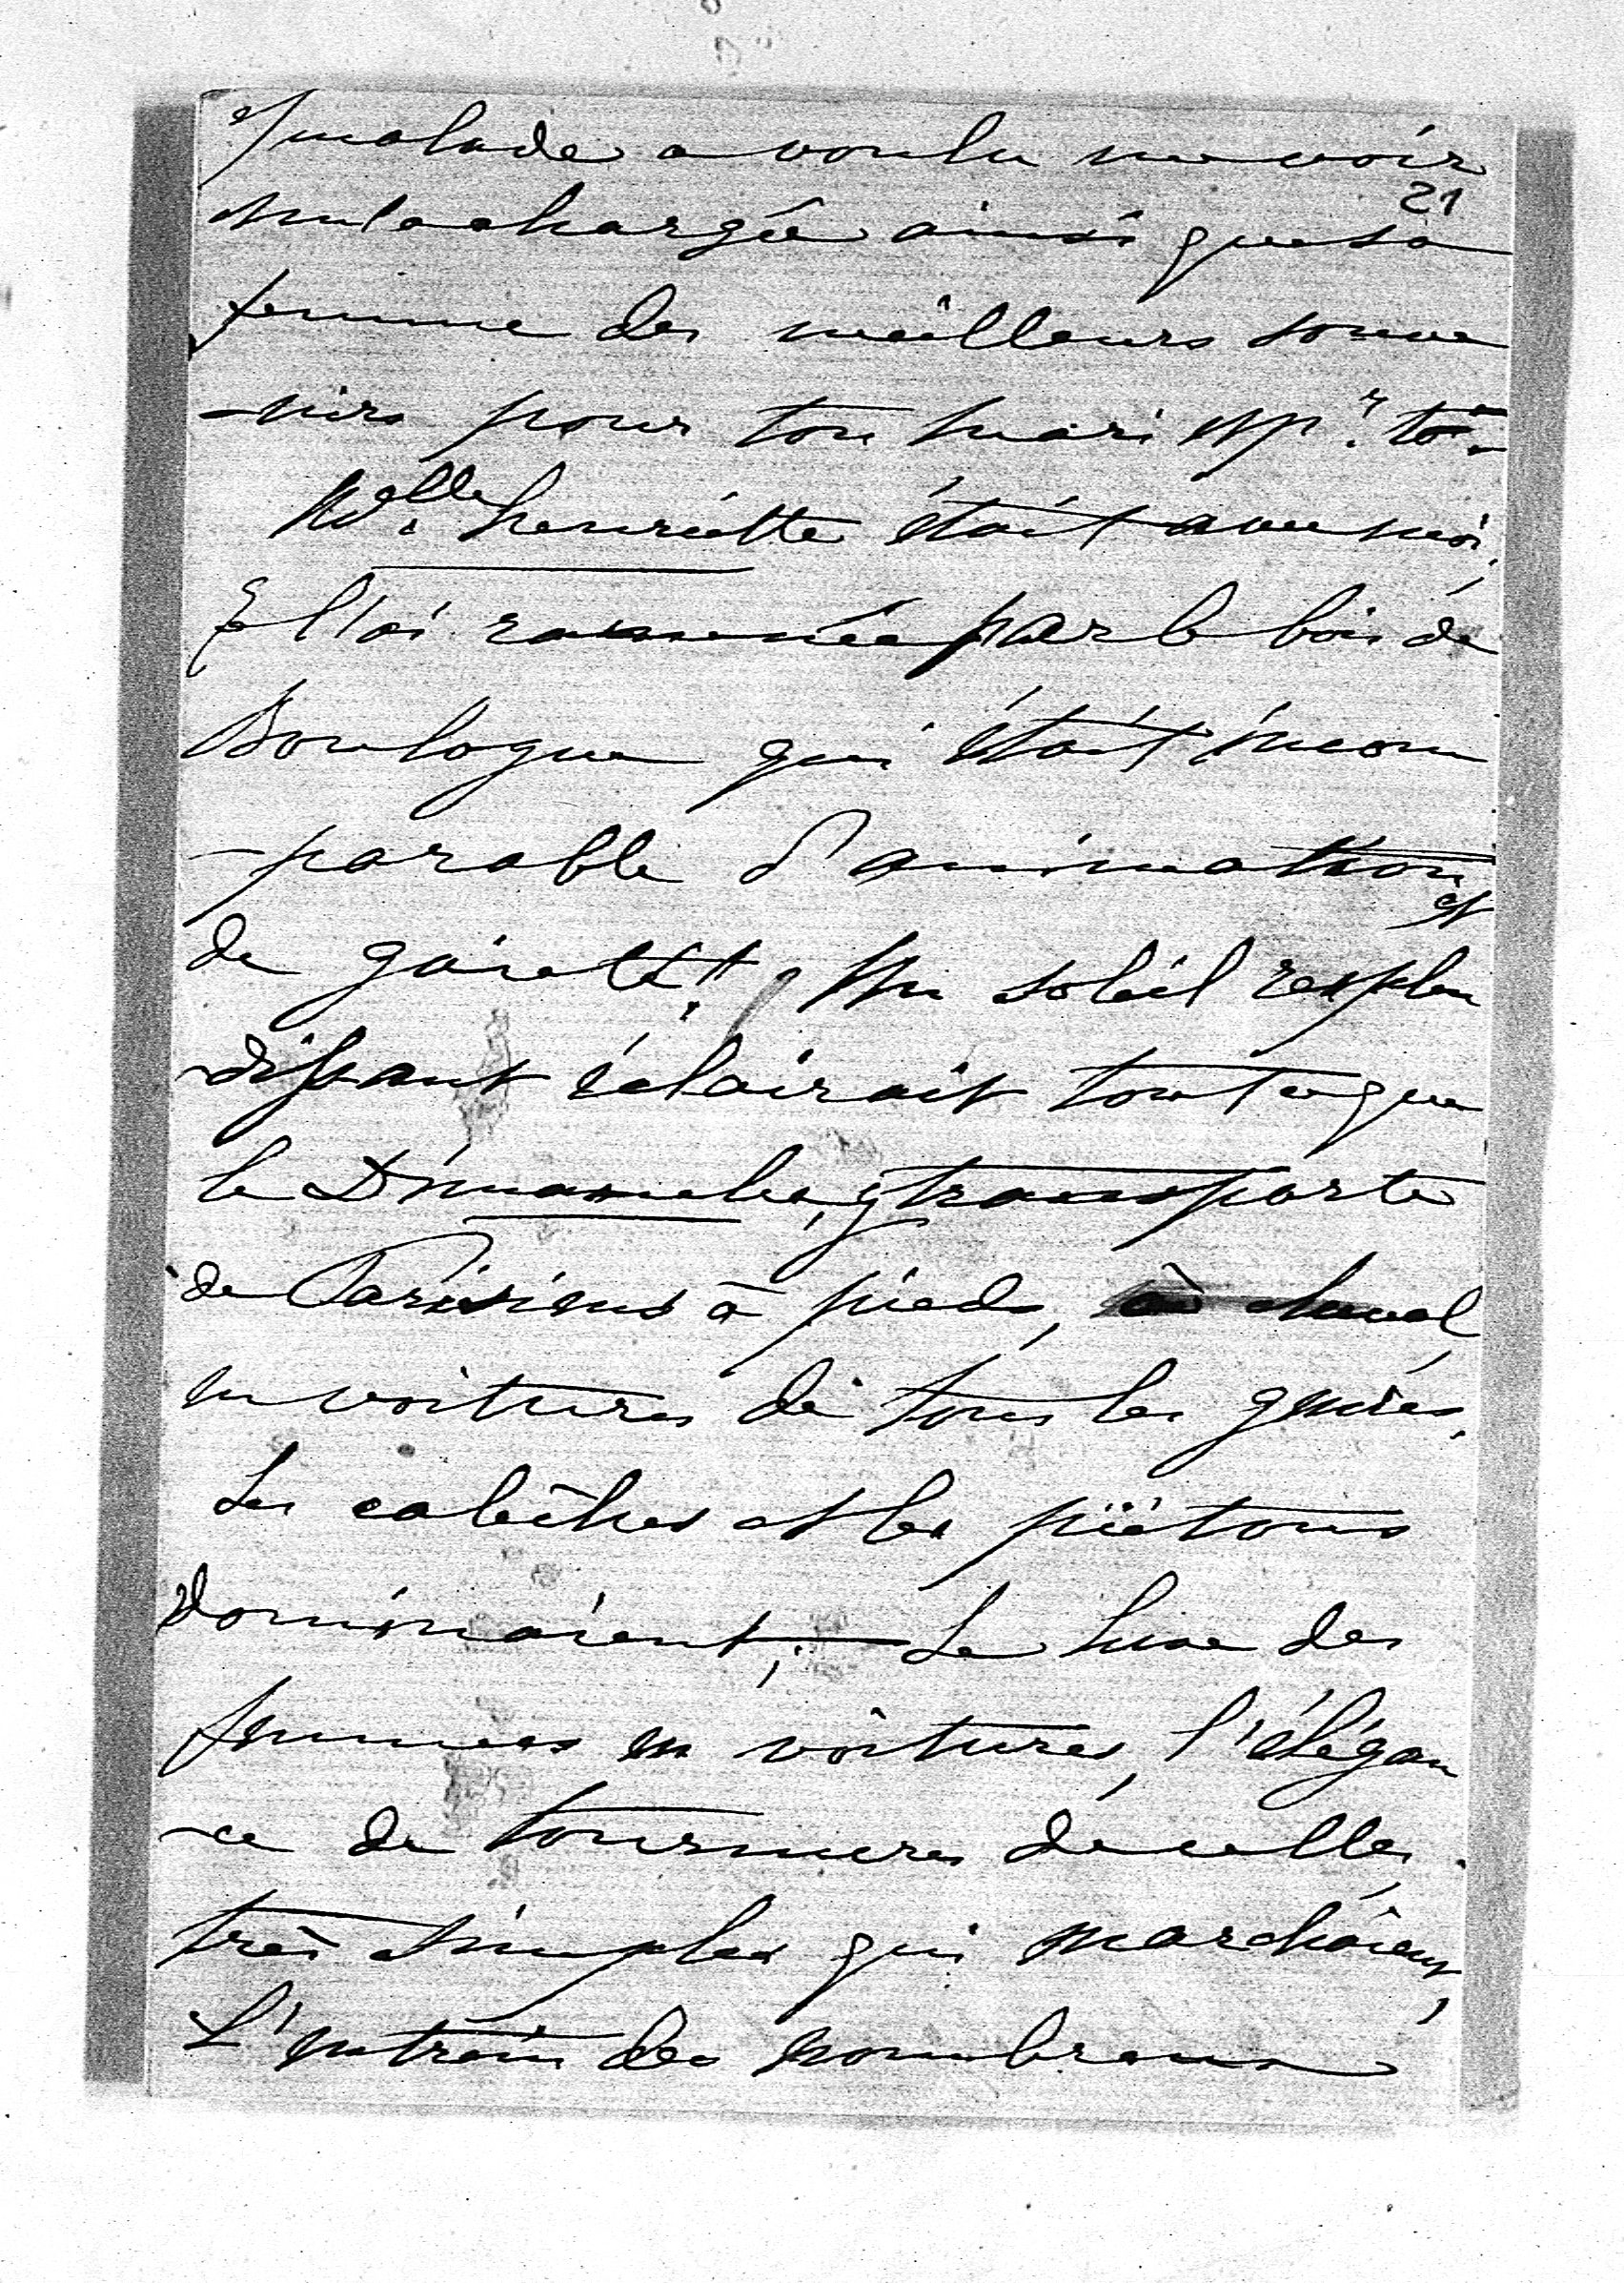 malade a voulu me voir
21
m'a chargée ainsi que sa
femme des meilleurs souve
-nirs pour ton mari et p.r toi.
M.elle henriette était avec moi,
Je l'ai ramenée par le bois de
Boulogne qui était incom
-parable d'animation et
de gaieté!! Un soleil resplen
-dissant éclairait tout ce que
le Dimanche, y transporte
de Parisiens à pieds, à cheval,
en voitures de tous les genres.
Les calèches et les piétons
dominaient; Le luxe des
femmes en voitures, l'élégan
-ce de tournures de celles
très simples qui marchaient,
L'entrain des nombreux